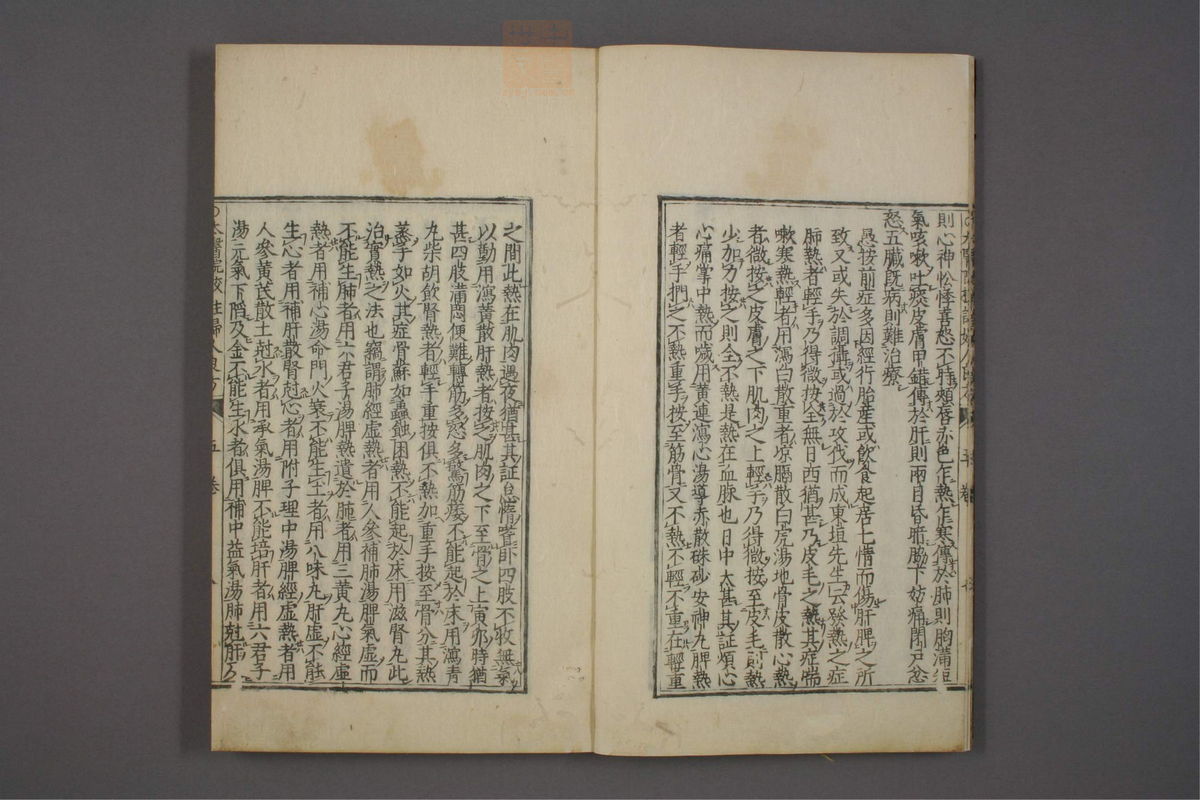 則心神忪悸喜怒不時頰唇赤色乍熱乍寒傳於肺則胸滿短
氣咳嗽吐痰皮膚甲錯傳於肝則兩目昏暗脇下妨痛閉戶忿
怒五臟既病則難治療
愚按前症多因經行胎產或飲食起居七情而傷肝脾之所
致又或失於調攝或過於攻伐而成東垣先生云發熱之症
肺熱者輕手乃得微按全無日西猶甚乃皮毛之熱其症喘
嗽寒熱輕者用瀉白散重者凉膈散白虎湯地骨皮散心熱
者微按之皮膚之下肌肉之上輕手乃得微按至皮毛則熱
少加力按之則全不熱是熱在血脉也日中太甚其証煩心
心痛掌中熱而噦用黃連瀉心湯導赤散硃砂安神丸脾熱
者輕手捫之不熱重手按至筋骨又不熱不輕不重在輕重
之間此熱在肌肉遇夜猶甚其証怠惰嗜卧四肢不收無氣
以動用瀉黃散肝熱者按之肌肉之下至骨之上寅夘時猶
甚四肢滿悶便難轉筋多怒多驚筋痿不能起於床用瀉青
丸柴胡飲腎熱者輕手重按俱不熱加重手按至骨分其熱
蒸手如火其症骨蘇如蟲蝕困熱不能起於床用滋腎丸此
治實熱之法也竊謂肺經虛熱者用人參補肺湯脾氣虛而
不能生肺者用六君子湯脾熱遺於肺者用三黃丸心經虛
熱者用補心湯命門火衰不能生土者用八味丸肝虛不能
生心者用補肝散腎尅心者用附子理中湯脾經虛熱者用
人參黃芪散土尅水者用承氣湯脾不能培肝者用六君子
湯元氣下陷及金不能生水者俱用補中益氣湯肺尅肝
五卷